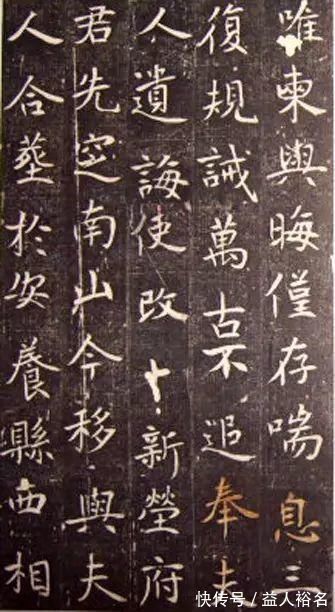 唯柬與晦僅存喘息三
復規誡萬古不追奉夫
人遺誨使改卜新塋府
君先窆南山今移與夫
人合葬於安養縣西相
快传号 / 益人裕名